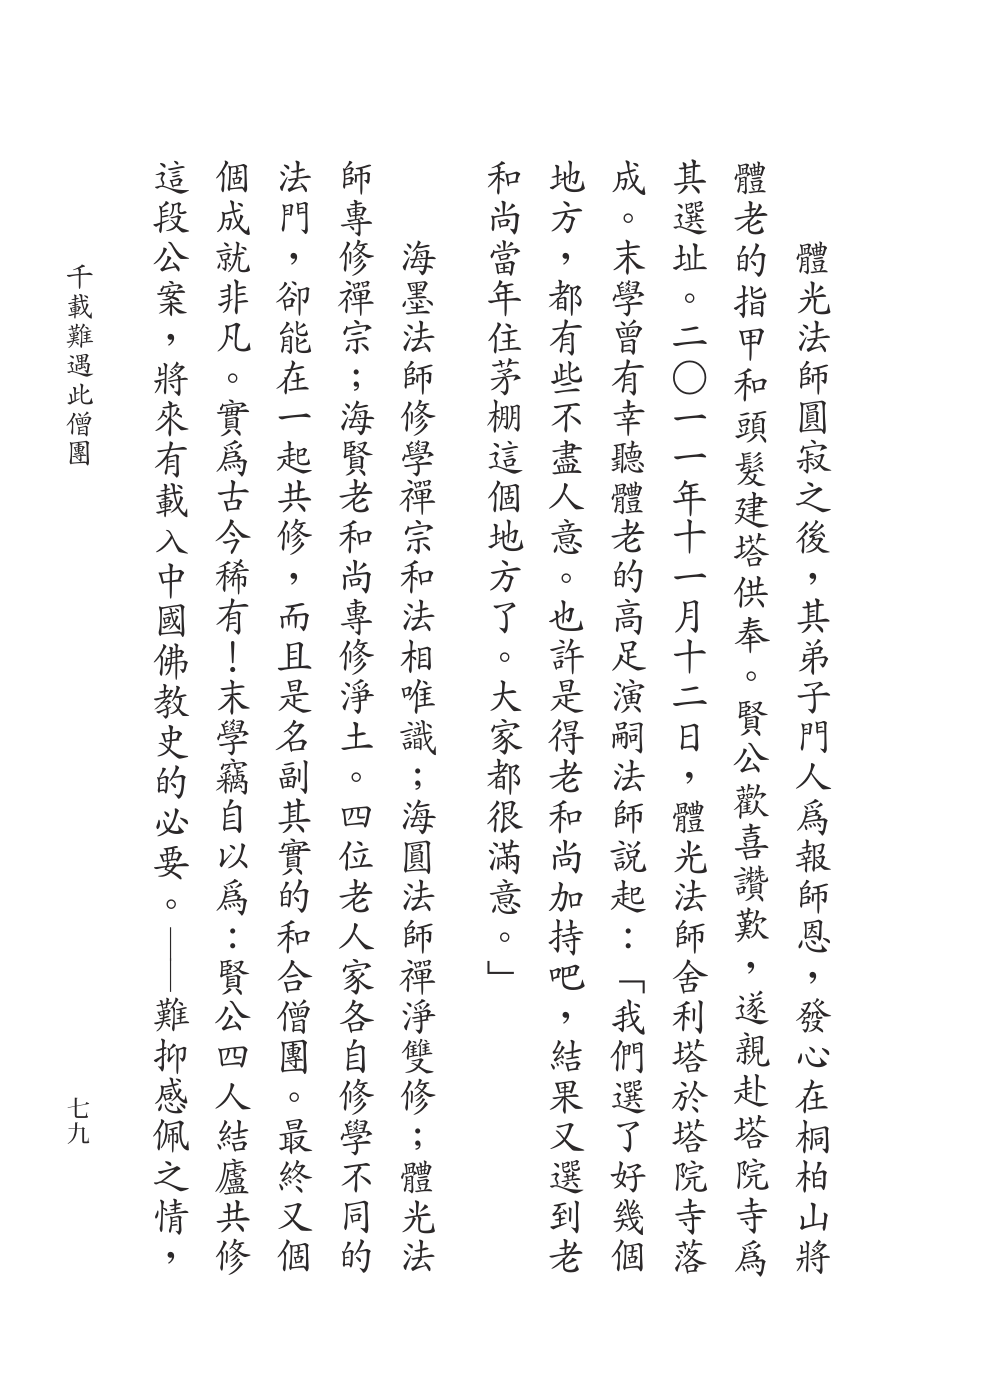 體光法師圓寂之後，其弟子門人爲報師恩，發心在桐柏山將
體老的指甲和頭髮建塔供奉。賢公歡喜讚歎，遂親赴塔院寺爲
其選址。二〇一一年十一月十二日，體光法師舍利塔於塔院寺落
成。末學曾有幸聽體老的高足演嗣法師説起：「我們選了好幾個
地方，都有些不盡人意。也許是得老和尚加持吧，結果又選到老
和尚當年住茅棚這個地方了。大家都很滿意。」
海墨法師修學禪宗和法相唯識；海圓法師禪淨雙修；體光法
師專修禪宗；海賢老和尚專修淨土。四位老人家各自修學不同的
法門，卻能在一起共修，而且是名副其實的和合僧團。最終又個
個成就非凡。實爲古今稀有！末學竊自以爲：賢公四人結廬共修
這段公案，將來有載入中國佛教史的必要。——難抑感佩之情，
千載難遇此僧團
七九